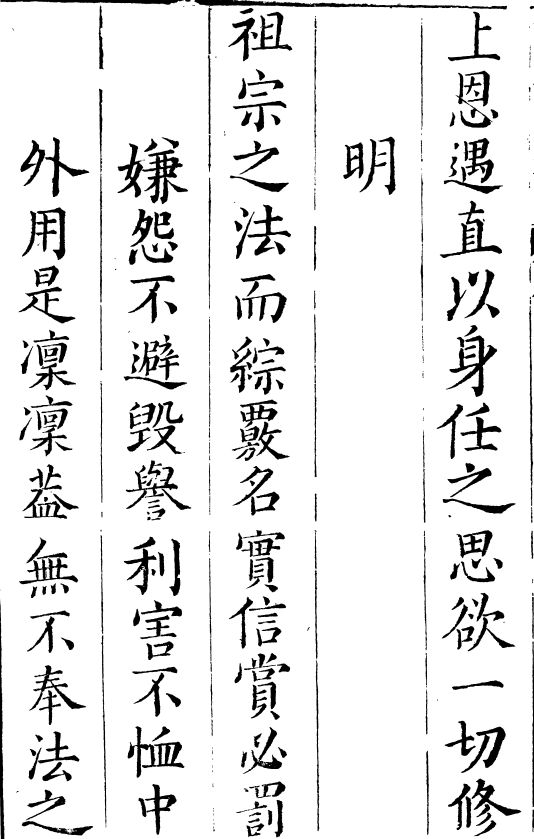 上恩遇直以身任之思欲一切修
明
祖宗之法而綜覈名實信賞必罰
嫌怨不避毀譽利害不恤中
外用是凜凜葢無不奉法之